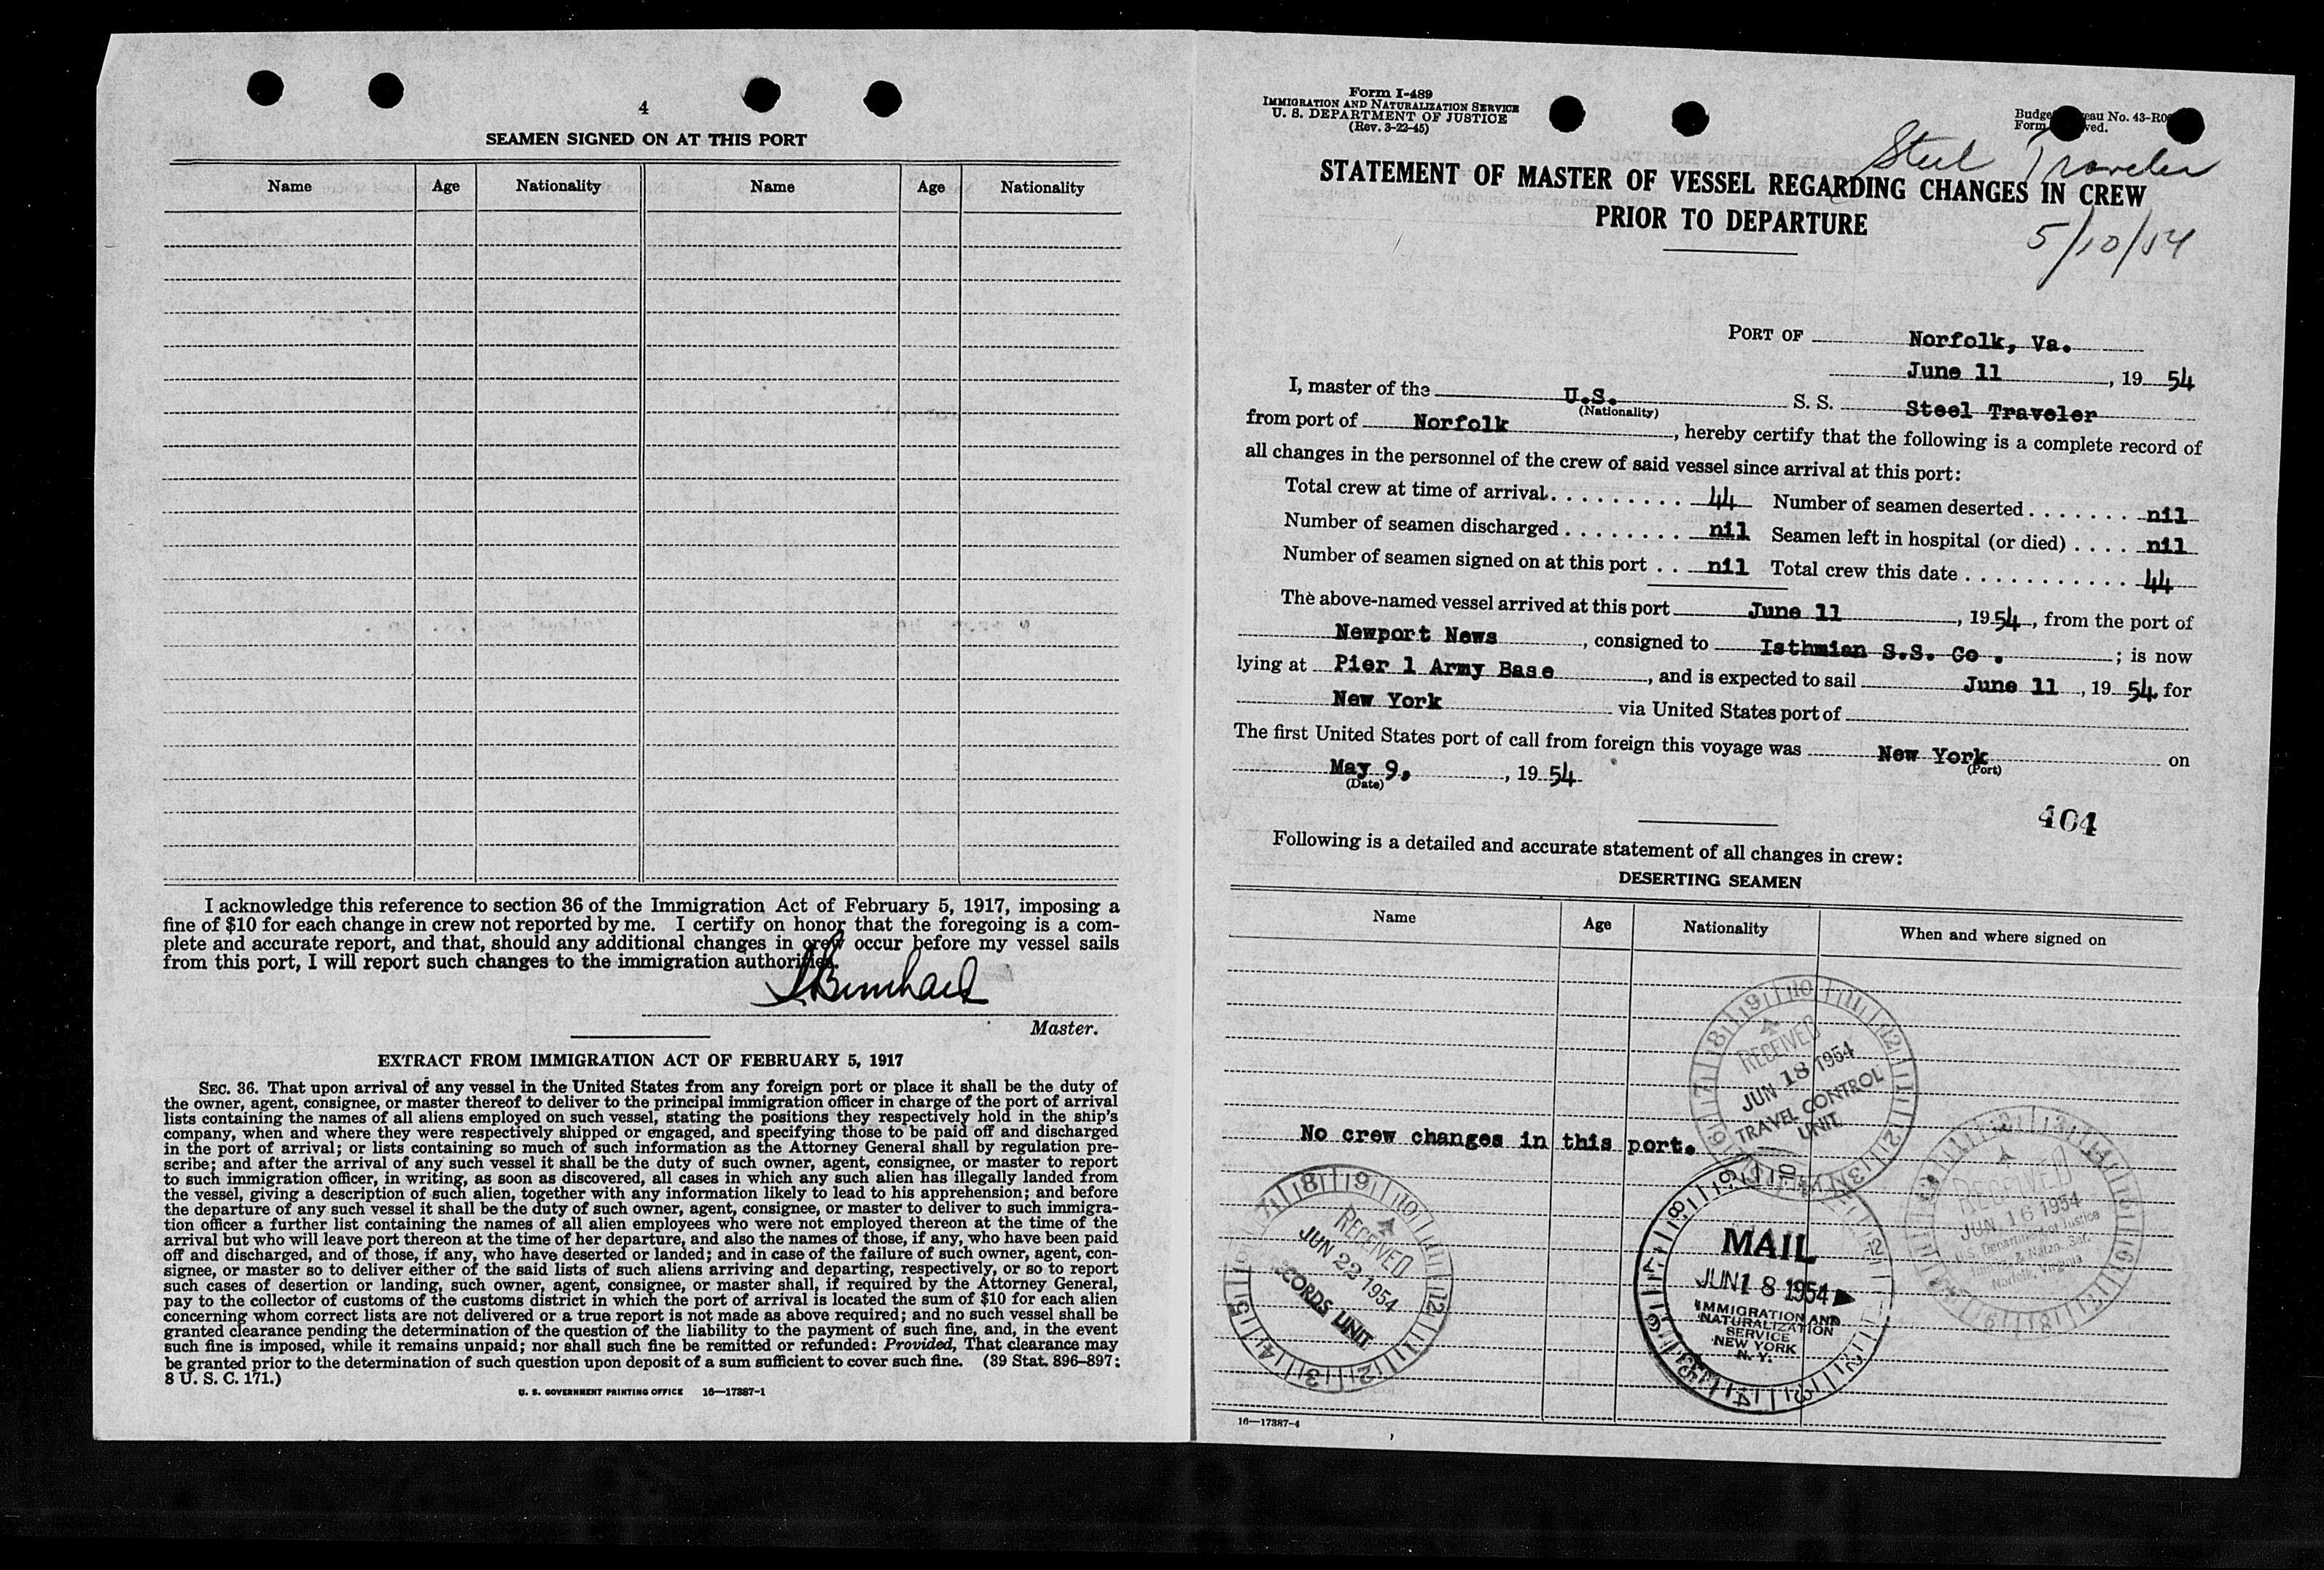 4
SEAMEN SIGNED ON AT THIS PORT
Name Age Nationality Name Age Nationality
I acknowledge this reference to section 36 of the Immigration Act of February 5, 1917, imposing a
fine of $10 for each change in crew not reported by me. I certify on honor that the foregoing is a com-
plete and accurate report, and that, should any additional changes in crew occur before my vessel sails
from this port, I will report such changes to the immigration authorities.
Master.
EXTRACT FROM IMMIGRATION ACT OF FEBRUARY 5, 1917
SEC. 36. That upon arrival of any vessel in the United States from any foreign port or place it shall be the duty of
the owner, agent, consignee, or master thereof to deliver to the principal immigration officer in charge of the port of arrival
lists containing the names of all aliens employed on such vessel, stating the positions they respectively hold in the ship's
company, when and where they were respectively shipped or engaged, and specifying those to be paid off and discharged
in the port of arrival; or lists containing so much of such information as the Attorney General shall by regulation pre-
scribe; and after the arrival of any such vessel it shall be the duty of such owner, agent, consignee, or master to report
to such immigration officer, in writing, as soon as discovered, all cases in which any such alien has illegally landed from
the vessel, giving a description of such alien, together with any information likely to lead to his apprehension; and before
the departure of any such vessel it shall be the duty of such owner, agent, consignee, or master to deliver to such immigra-
tion officer a further list containing the names of all alien employees who were not employed thereon at the time of the
arrival but who will leave port thereon at the time of her departure, and also the names of those, if any, who have been paid
off and discharged, and of those, if any, who have deserted or landed; and in case of the failure of such owner, agent, con-
signee, or master so to deliver either of the said lists of such aliens arriving and departing, respectively, or so to report
such cases of desertion or landing, such owner, agent, consignee, or master shall, if required by the Attorney General,
pay to the collector of customs of the customs district in which the port of arrival is located the sum of $10 for each alien
concerning whom correct lists are not delivered or a true report is not made as above required; and no such vessel shall be
granted clearance pending the determination of the question of the liability to the payment of such fine, and, in the event
such fine is imposed, while it remains unpaid; nor shall such fine be remitted or refunded: Provided, That clearance may
be granted prior to the determination of such question upon deposit of a sum sufficient to cover such fine. (39 Stat. 896-897;
8 U. S. C. 171.)
U. S. GOVERNMENT PRINTING OFFICE 16—17387-1
Form I-489
IMMIGRATION AND NATURALIZATION SERVICE
U. S. DEPARTMENT OF JUSTICE
(Rev. 3-22-45)
No. 43-R0
Form
Steel Traveler
STATEMENT OF MASTER OF VESSEL REGARDING CHANGES IN CREW
PRIOR TO DEPARTURE
5/10/54
PORT OF Norfolk, Va.
June 11, 19 54
I, master of the U.S. S. S. Steel Traveler
(Nationality)
from port of Norfolk, hereby certify that the following is a complete record of
all changes in the personnel of the crew of said vessel since arrival at this port:
Total crew at time of arrival. . . . . . . . . 44 Number of seamen deserted . . . . . . . nil
Number of seamen discharged . . . . . . . . nil Seamen left in hospital (or died) . . . . nil
Number of seamen signed on at this port . . nil Total crew this date . . . . . . . . . . . . 44
The above-named vessel arrived at this port June 11, 19 54, from the port of
Newport News, consigned to Isthmian S.S. Co.; is now
lying at Pier 1 Army Base, and is expected to sail June 11, 19 54, for
New York via United States port of
The first United States port of call from foreign this voyage was New York on
(Port)
May 9, 19 54
(Date)
404
Following is a detailed and accurate statement of all changes in crew:
DESERTING SEAMEN
Name Age Nationality When and where signed on
RECEIVED
JUN 18 1954
TRAVEL CONTROL
UNIT
No crew changes in this port.
RECEIVED
JUN 16 1954
U.S. Department of Justice
Immig. & Natzn. Ser.
Norfolk, Virginia
RECEIVED
JUN 22 1954
CORDS UNIT
MAIL
JUN 18 1954
IMMIGRATION AND
NATURALIZATION
SERVICE
NEW YORK
N. Y.
16—17387-4